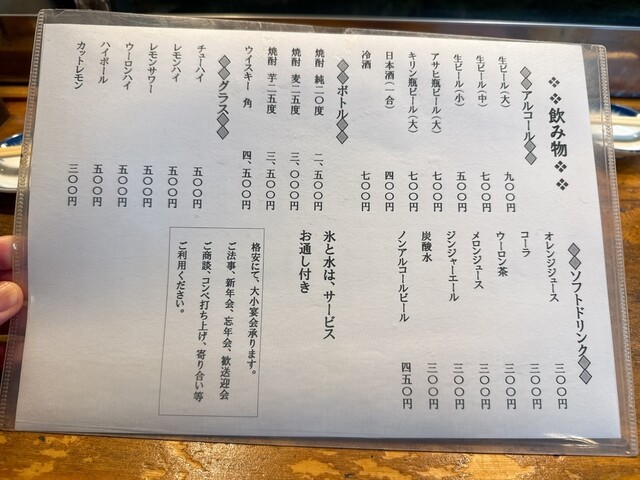 ❖❖飲み物❖❖
◆◆アルコール◆◆
生ビール(大) 九〇〇円
生ビール(中) 七〇〇円
生ビール(小) 五〇〇円
アサヒ瓶ビール(大) 七〇〇円
キリン瓶ビール(大) 七〇〇円
日本酒(一合) 四〇〇円
冷酒 七〇〇円
◆◆ボトル◆◆
焼酎 純二〇度 二、五〇〇円
焼酎 麦二五度 三、〇〇〇円
焼酎 芋二五度 三、五〇〇円
ウイスキー 角 四、五〇〇円
◆◆グラス◆◆
チューハイ 五〇〇円
レモンハイ 五〇〇円
レモンサワー 五〇〇円
ウーロンハイ 五〇〇円
ハイボール 五〇〇円
カットレモン 三〇〇円
◆◆ソフトドリンク◆◆
オレンジジュース 三〇〇円
コーラ 三〇〇円
ウーロン茶 三〇〇円
メロンジュース 三〇〇円
ジンジャーエール 三〇〇円
炭酸水 三〇〇円
ノンアルコールビール 四五〇円
氷と水は、サービス
お通し付き
格安にて、大小宴会承ります。
ご法事、新年会、忘年会、歓送迎会
ご商談、コンペ打ち上げ、寄り合い等
ご利用ください。